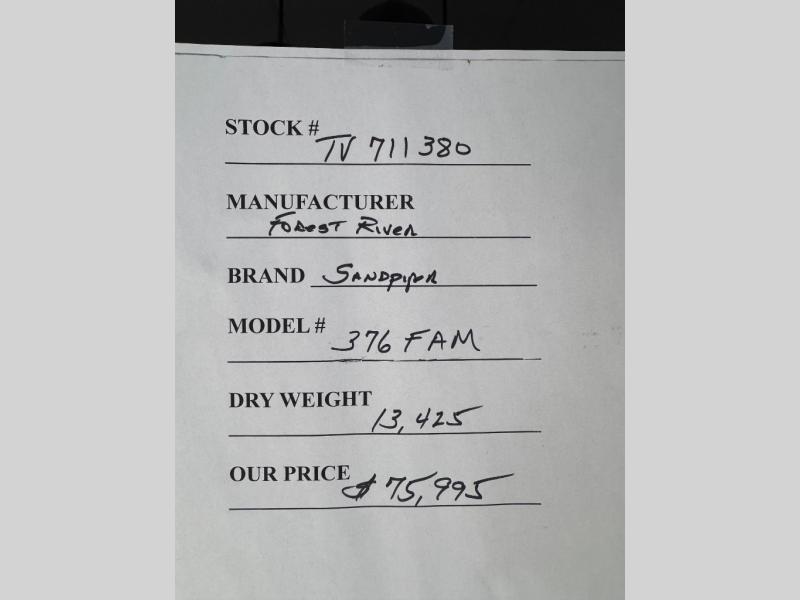 STOCK # TV 711380
MANUFACTURER
Forest River
BRAND Sandpiper
MODEL # 376 FAM
DRY WEIGHT 13,425
OUR PRICE $75,995